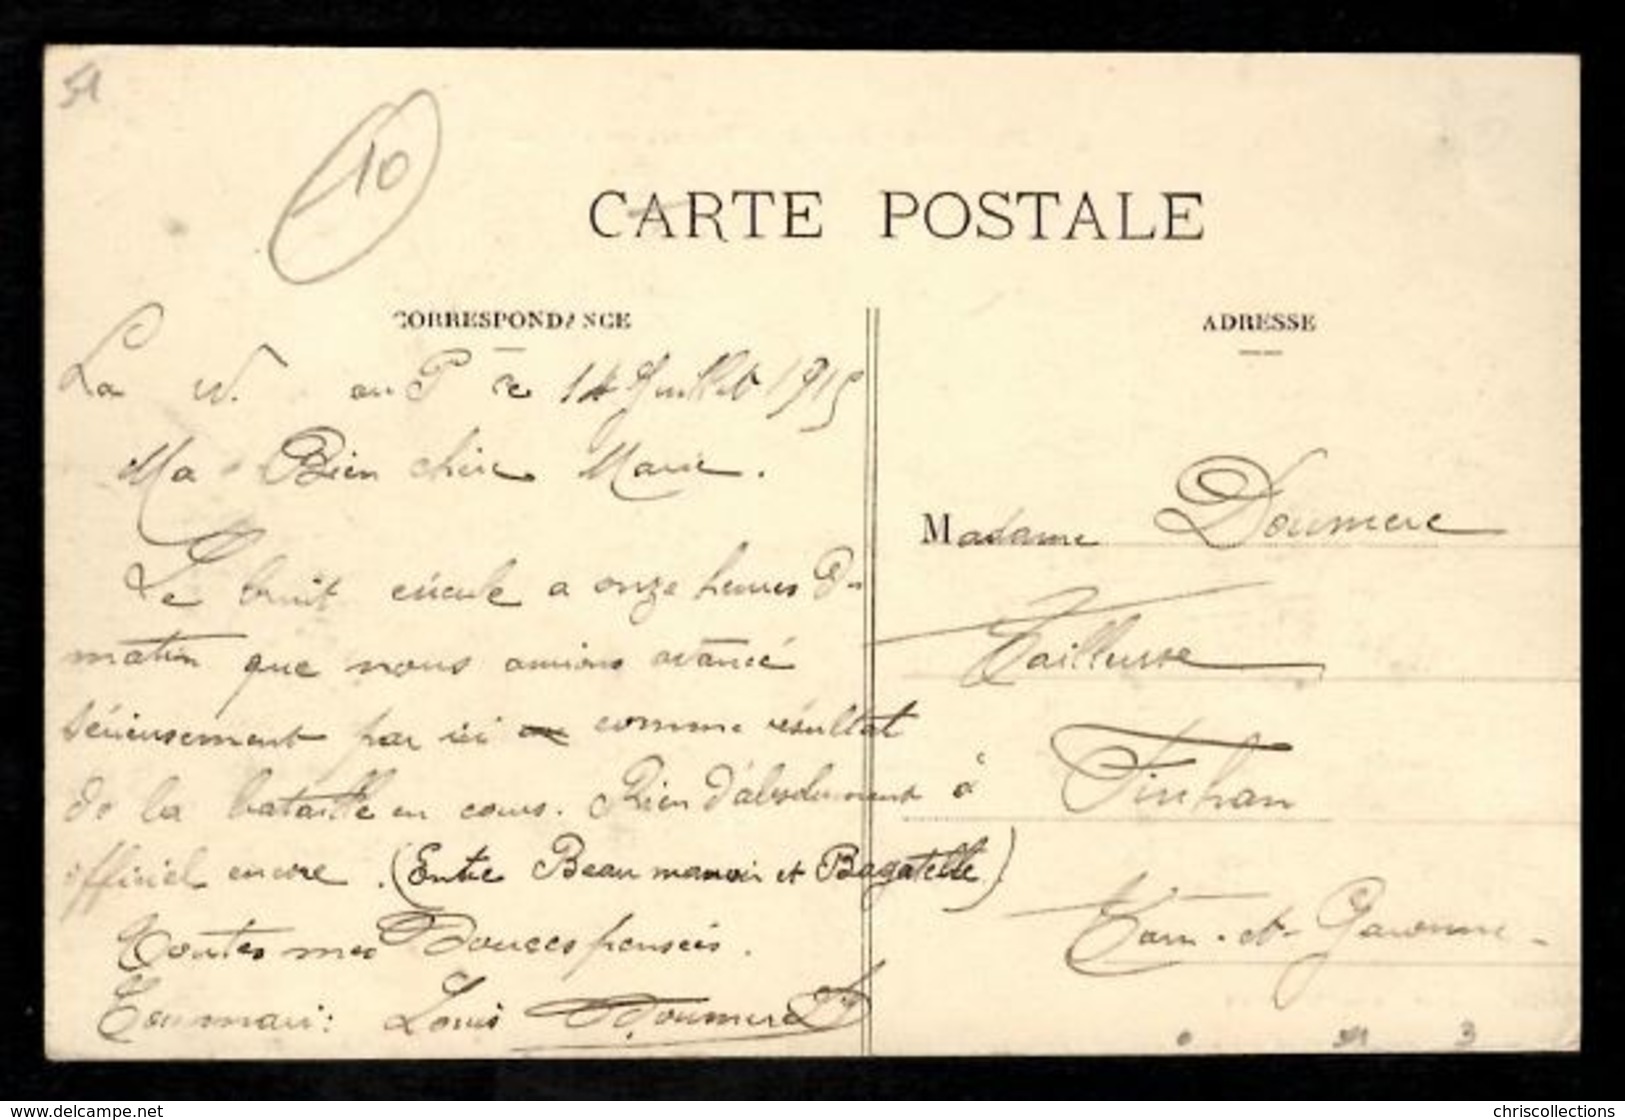 51
10
CARTE POSTALE
CORRESPONDANCE
ADRESSE
La W. au P ce 14 Juillet 1915
Ma Bien chère Marie.
Le bruit circule a onze heures d
matin que nous aurions avancé
sérieusement par ici comme résultat
de la bataille en cours. Rien d'absolument
officiel encore. (Entre Beaumanoir et Bagatelle)
Toutes mes Douces pensées.
Ton mari: Louis Doumerc
Madame Doumerc
Tailleuse
à Finhan
Tarn-et-Garonne
51 3
delcampe.net
chriscollections